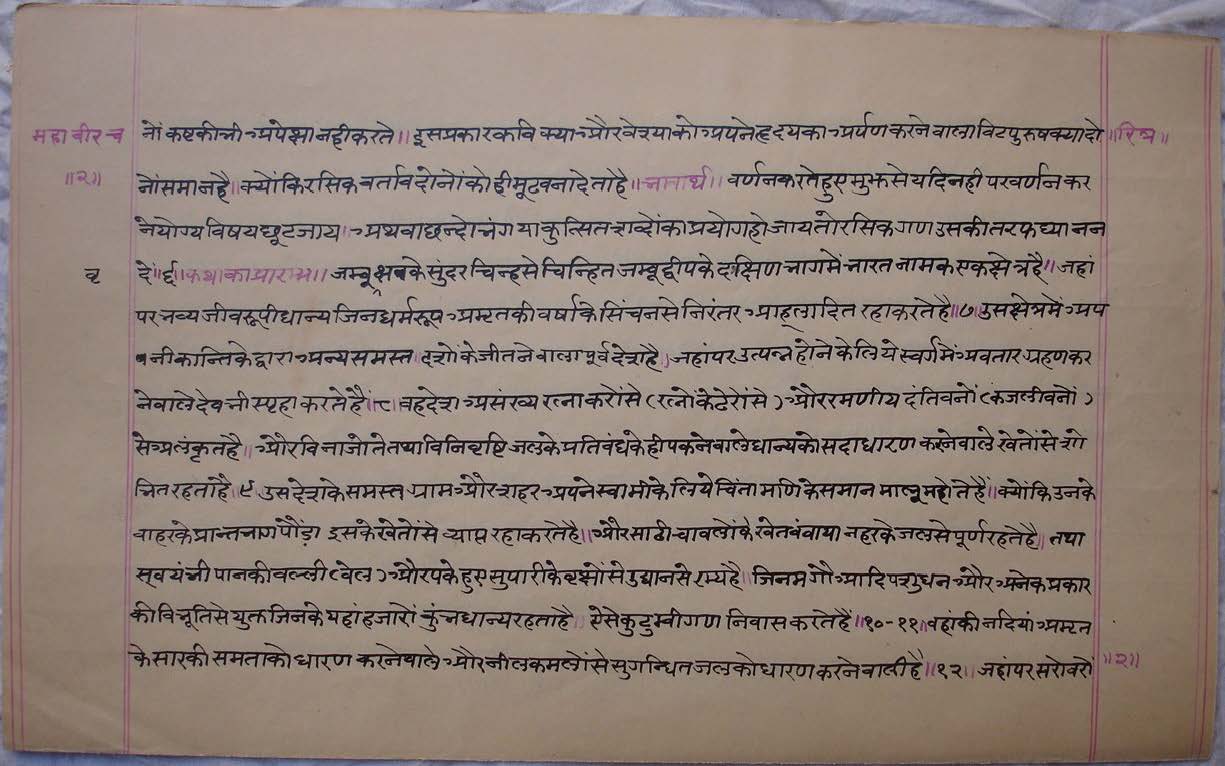 महावीरच नों कष्टकी भी अपेक्षा नही करते॥ इसप्रकार कवि क्या और वेश्याको अपने हृदयका अर्पण करनेवाला विटपुरुष क्या दो ॥रित्र॥
॥२॥ नों समान है॥ क्योंकि रसिक वर्ताव दोनोंको ही मूढ वना देता है ॥भावार्थ॥ वर्णन करते हुए मुझसे यदि नही पर वर्णन कर
नेयोग्य विषय छूट जाय॥ अथवा छन्दोभंग या कुत्सित शव्दोंका प्रयोग हो जाय तो रसिक गण उसकी तरफ ध्यान न
वृ दें॥६॥ कथाका प्रारम्भ॥ जम्बूक्षके सुंदर चिन्हसे चिन्हित जम्बूद्वीपके दक्षिण भागमें भारत नामक एक क्षेत्र है॥ जहां
पर भव्य जीवरूपी धान्य जिनधर्मरूप अमृतकी वर्षाके सिंचनसे निरंतर आह्लादित रहा करते है॥७॥ उस क्षेत्रमें अप
नी कान्तिके द्वारा अन्य समस्त देशोंके जीतनेवाला पूर्व देश है॥ जहांपर उत्पन्न होनेके लिये स्वर्गमें अवतार ग्रहण कर
नेवाले देव भी स्पृहा करते हैं॥८॥ वह देश असंख्य रत्नाकरोंसे (रत्नोंके ढेरोंसे) और रमणीय दंतिवनों (कजलीवनों)
से अलंकृत है॥ और विना जोते तथा विनि वृष्टि जलके प्रतिवंधके ही पकनेवाले धान्यको सदा धारण करनेवाले खेतोंसे शो
भित रहता है॥९॥ उस देशके समस्त ग्राम और शहर अपने स्वामीके लिये चिंतामणिके समान मालूम होते हैं॥ क्योंकि उनके
वाहरके प्रान्त भाग पौंड़ा इसके खेतोंसे व्याप्त रहा करते है॥ और साठी चावलोंके खेत बंवा या नहरके जलसे पूर्ण रहते है॥ तथा
स्वयं भी पानकी वल्ली (वेल) और पके हुए सुपारीके वृक्षोंसे उद्यानसे रम्य है॥ जिनमें गौ आदि पशुधन और अनेक प्रकार
की विभूतिसे युक्त जिनके यहां हजारों कुंभ धान्य रहता है॥ ऐसे कुटुम्वी गण निवास करते हैं॥१०-११॥ वहांकी नदियां अमृत
के सारकी समताको धारण करनेवाले और नील कमलोंसे सुगन्धित जलको धारण करनेवाली है॥१२॥ जहांपर सरोवरों ॥२॥